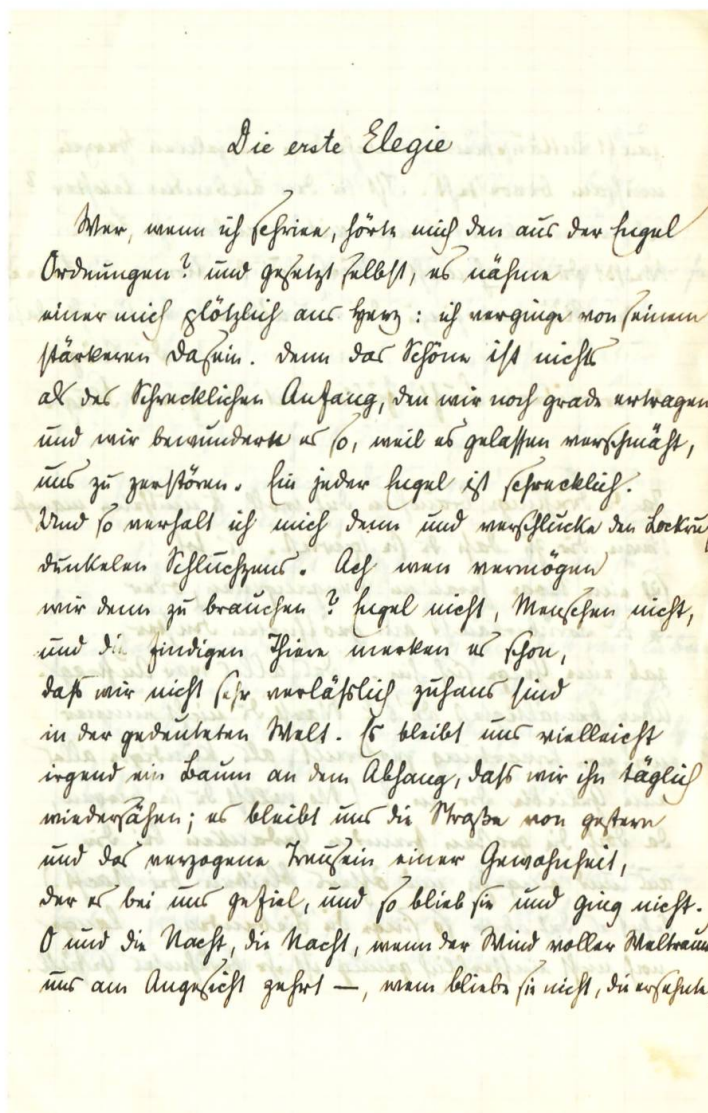 Die erste Elegie
Wer, wenn ich schriee, hörte mich den aus der Engel
Ordnungen? und gesetzt selbst, es nähme
einer mich plötzlich ans Herz: ich verginge von seinem
stärkeren Dasein. Denn das Schöne ist nichts
als des Schrecklichen Anfang, den wir noch grade ertragen
und wir bewundern es so, weil es gelassen verschmäht,
uns zu zerstören. Ein jeder Engel ist schrecklich.
Und so verhalt ich mich denn und verschlucke den Lockruf
dunkelen Schluchzens. Ach wen vermögen
wir denn zu brauchen? Engel nicht, Menschen nicht,
und die findigen Thiere merken es schon,
daß wir nicht sehr verläßlich zuhaus sind
in der gedeuteten Welt. Es bleibt uns vielleicht
irgend ein Baum an dem Abhang, daß wir ihn täglich
wiedersähen; es bleibt uns die Straße von gestern
und das verzogene Treusein einer Gewohnheit,
der es bei uns gefiel, und so blieb sie und ging nicht.
O und die Nacht, die Nacht, wenn der Wind voller Weltraum
uns am Angesicht zehrt —, wem bliebe sie nicht, die ersehnte